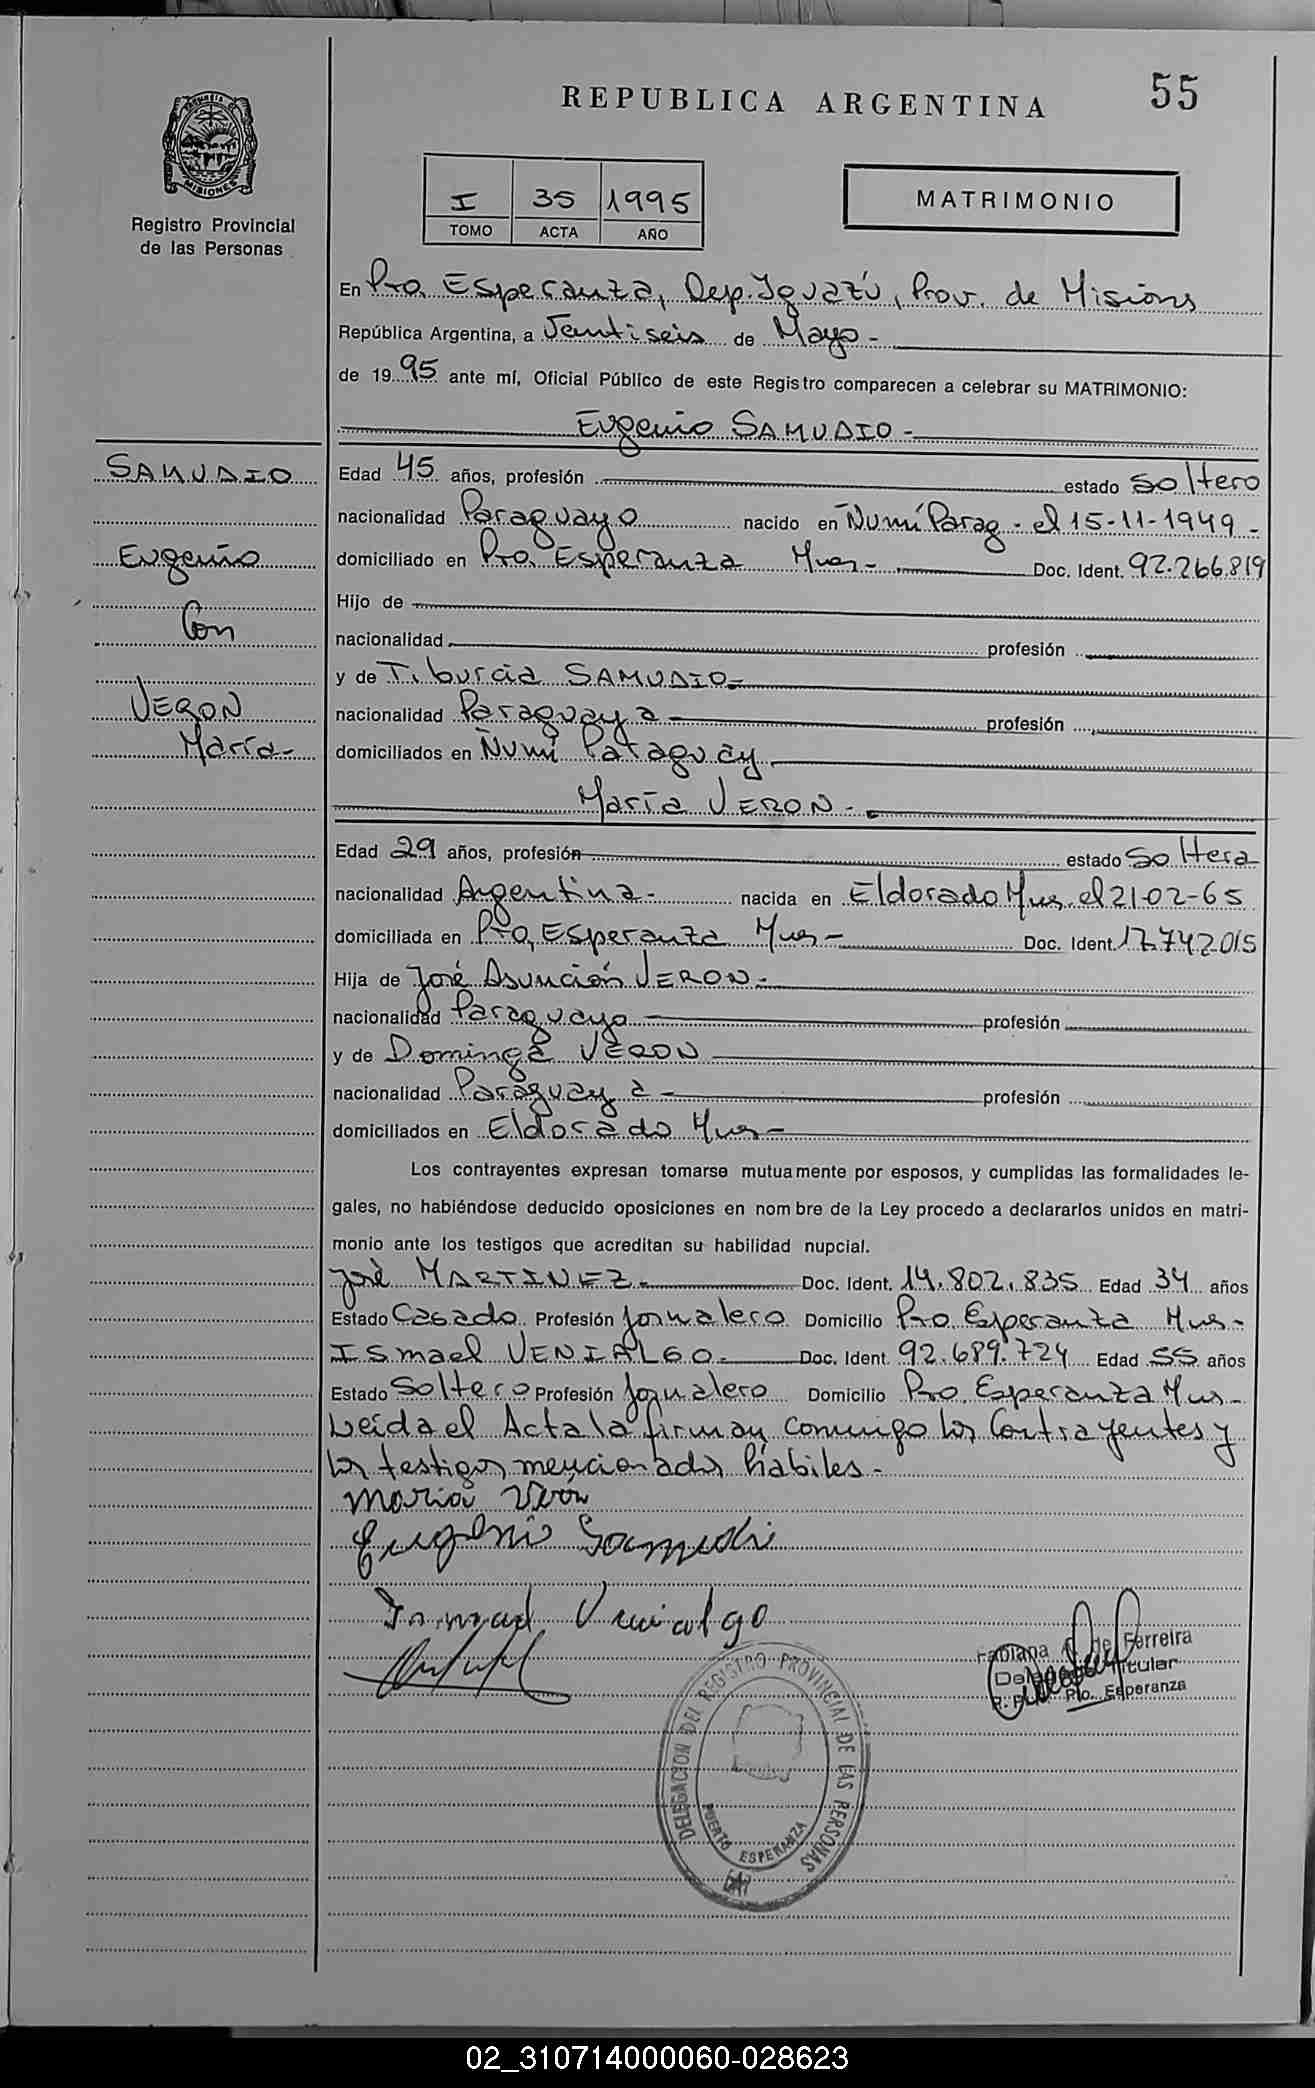 REPUBLICA ARGENTINA
55
MISIONES
Registro Provincial
de las Personas
I 35 1995
TOMO ACTA AÑO
MATRIMONIO
En Pto. Esperanza, Dep. Iguazú, Prov. de Misions
República Argentina, a Ventiseis de Mayo -
de 19 95 ante mí, Oficial Público de este Registro comparecen a celebrar su MATRIMONIO:
Eugenio SAMUDIO -
SAMUDIO
Eugenio
Con
VERON
María -
Edad 45 años, profesión estado Soltero
nacionalidad Paraguayo nacido en Ñumí Parag - el 15-11-1949 -
domiciliado en Pto. Esperanza Mnes - Doc. Ident. 92.266.819
Hijo de
nacionalidad profesión
y de Tiburcia SAMUDIO -
nacionalidad Paraguaya - profesión
domiciliados en Ñumí Paraguay
María VERON -
Edad 29 años, profesión estado Soltera
nacionalidad Argentina - nacida en Eldorado Mnes. el 21-02-65
domiciliada en Pto. Esperanza Mnes - Doc. Ident. 17.742.015
Hija de José Asunción VERON -
nacionalidad Paraguayo profesión
y de Dominga VERON
nacionalidad Paraguaya - profesión
domiciliados en Eldorado Mnes -
Los contrayentes expresan tomarse mutuamente por esposos, y cumplidas las formalidades le-
gales, no habiéndose deducido oposiciones en nombre de la Ley procedo a declararlos unidos en matri-
monio ante los testigos que acreditan su habilidad nupcial.
José MARTINEZ - Doc. Ident. 14.802.835 Edad 34 años
Estado Casado Profesión Jornalero Domicilio Pto Esperanza Mnes -
Ismael VENIALGO - Doc. Ident. 92.689.724 Edad 55 años
Estado Soltero Profesión Jornalero Domicilio Pto. Esperanza Mnes -
Leída el Acta la firman conmigo los Contrayentes y
los testigos mencionados hábiles -
Maria Verón
Eugenio Samudio
Ismael Venialgo
Fabiana A. de Ferreira
Titular
Pto. Esperanza
DELEGACION DEL REGISTRO PROVINCIAL DE LAS PERSONAS
PUERTO ESPERANZA
02_310714000060-028623